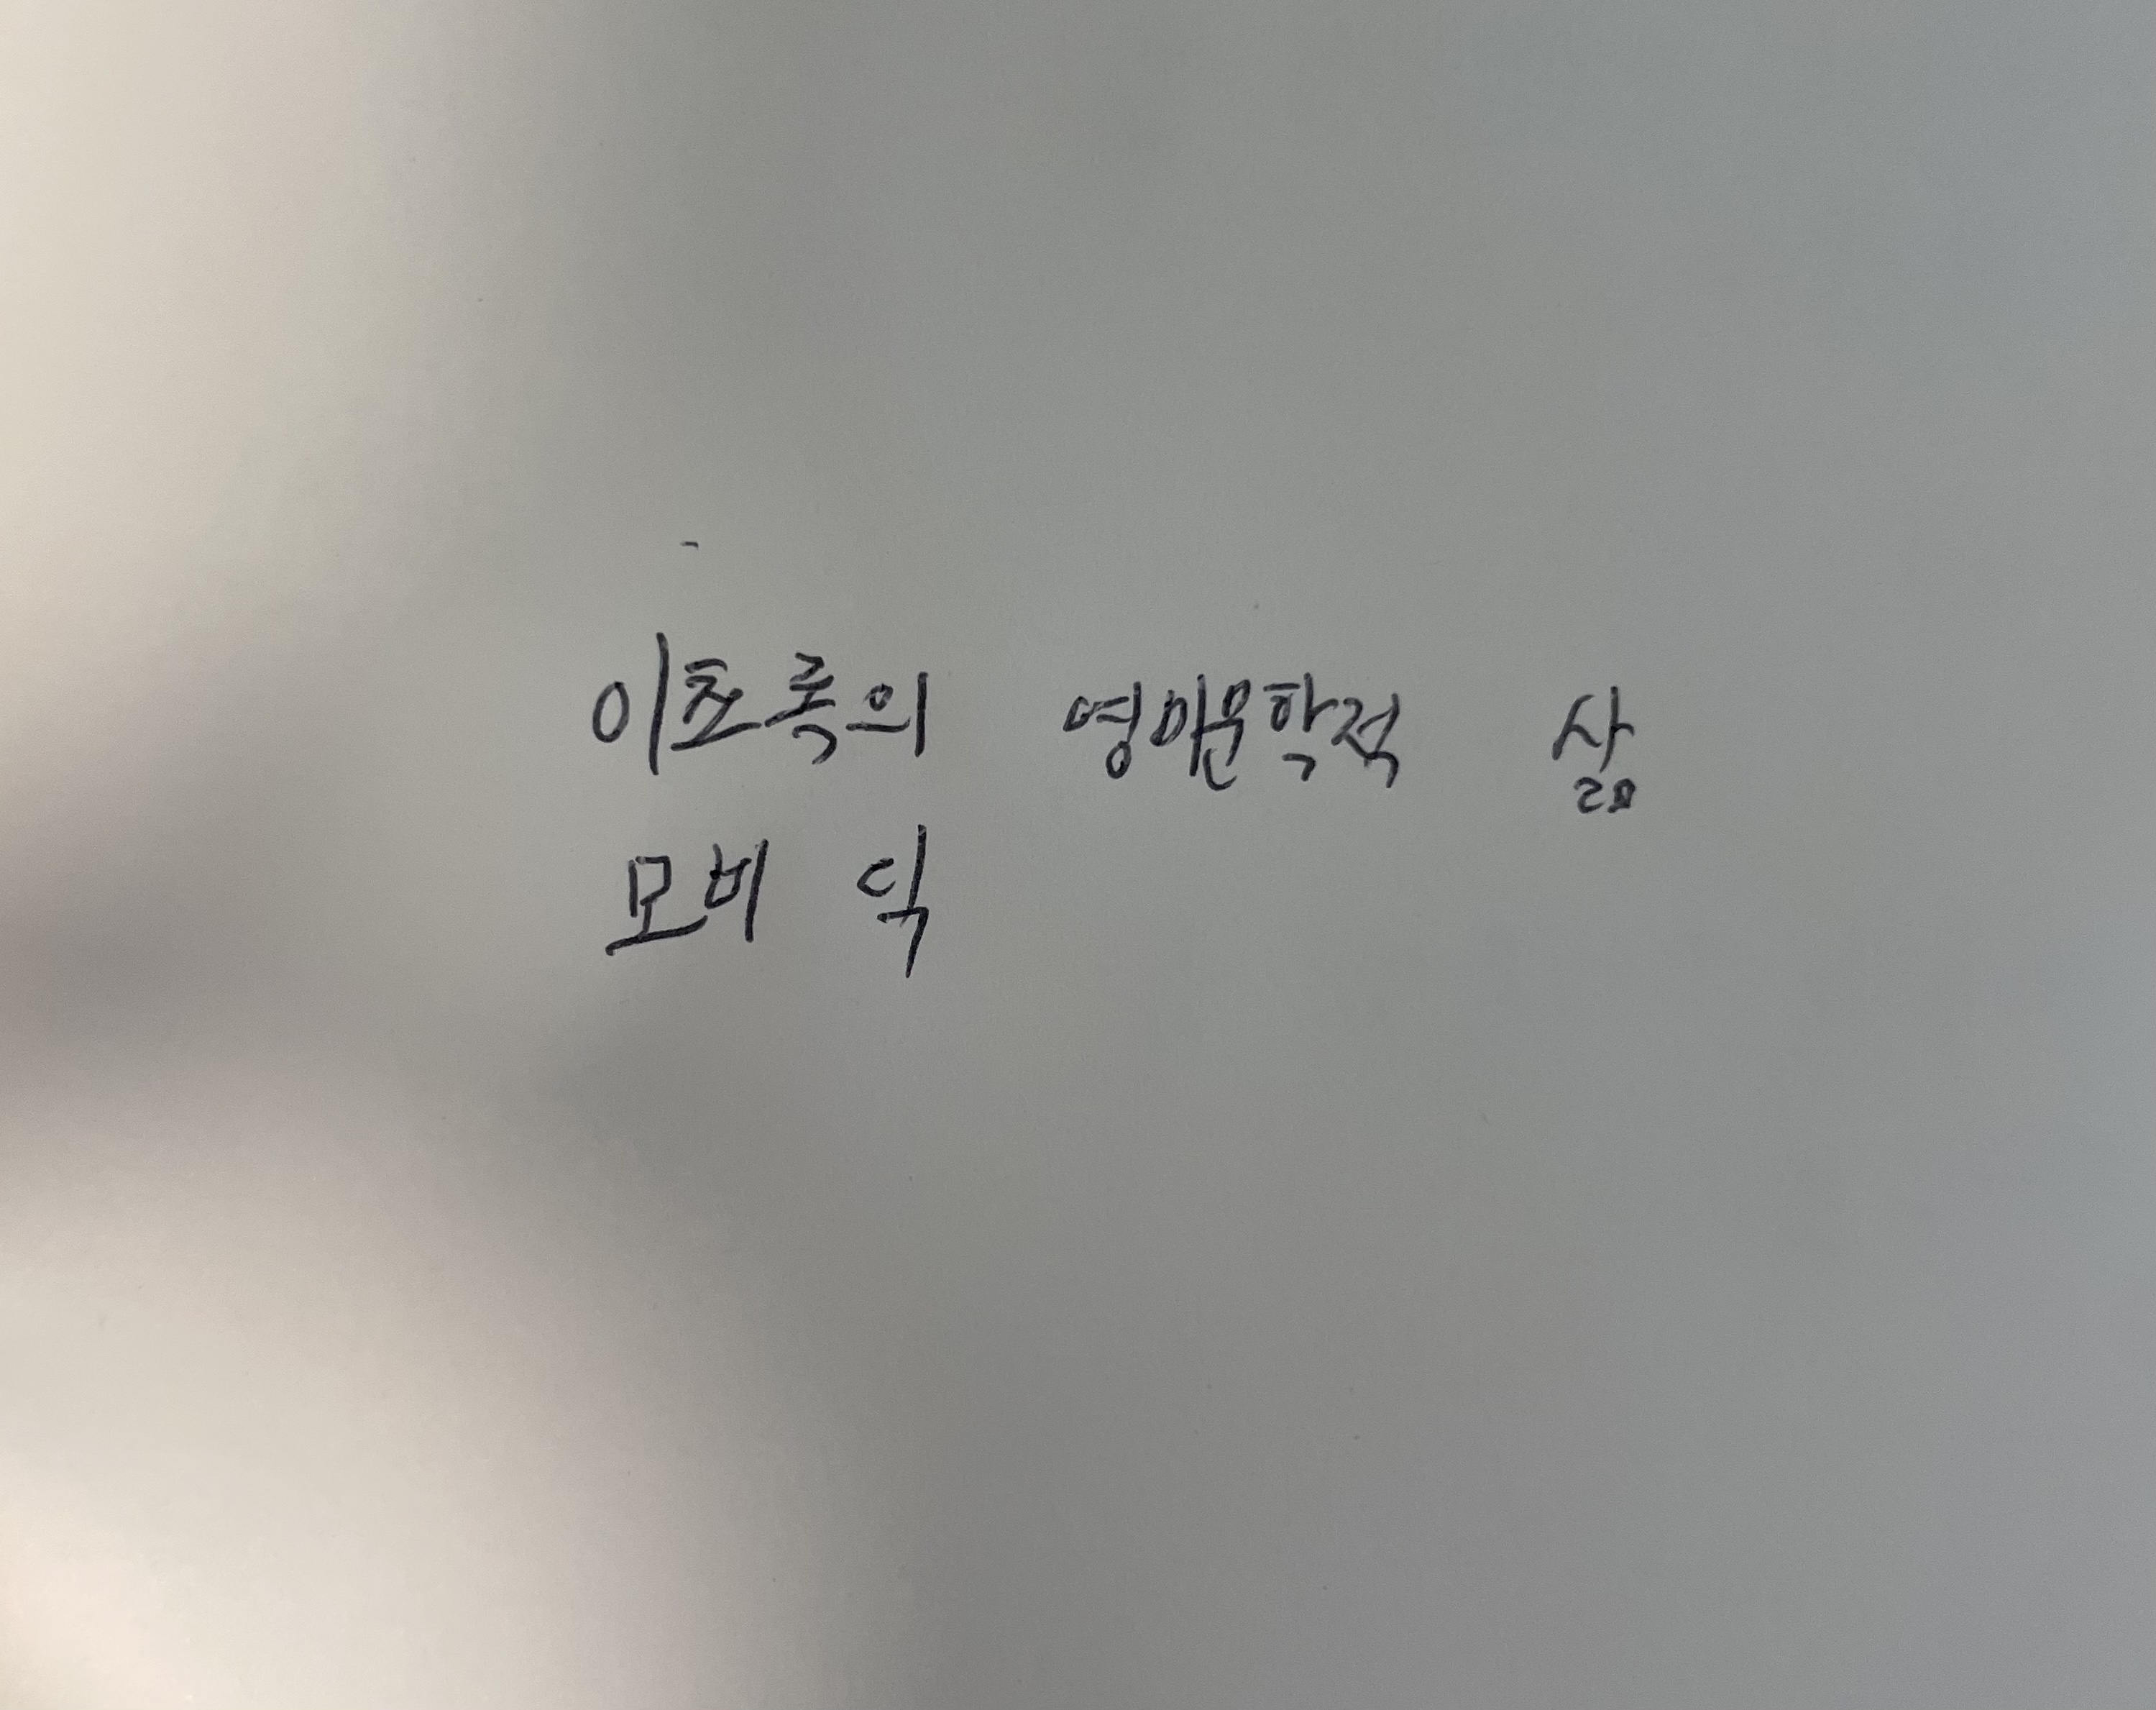 이초록의 영미문학적 삶
모비 딕